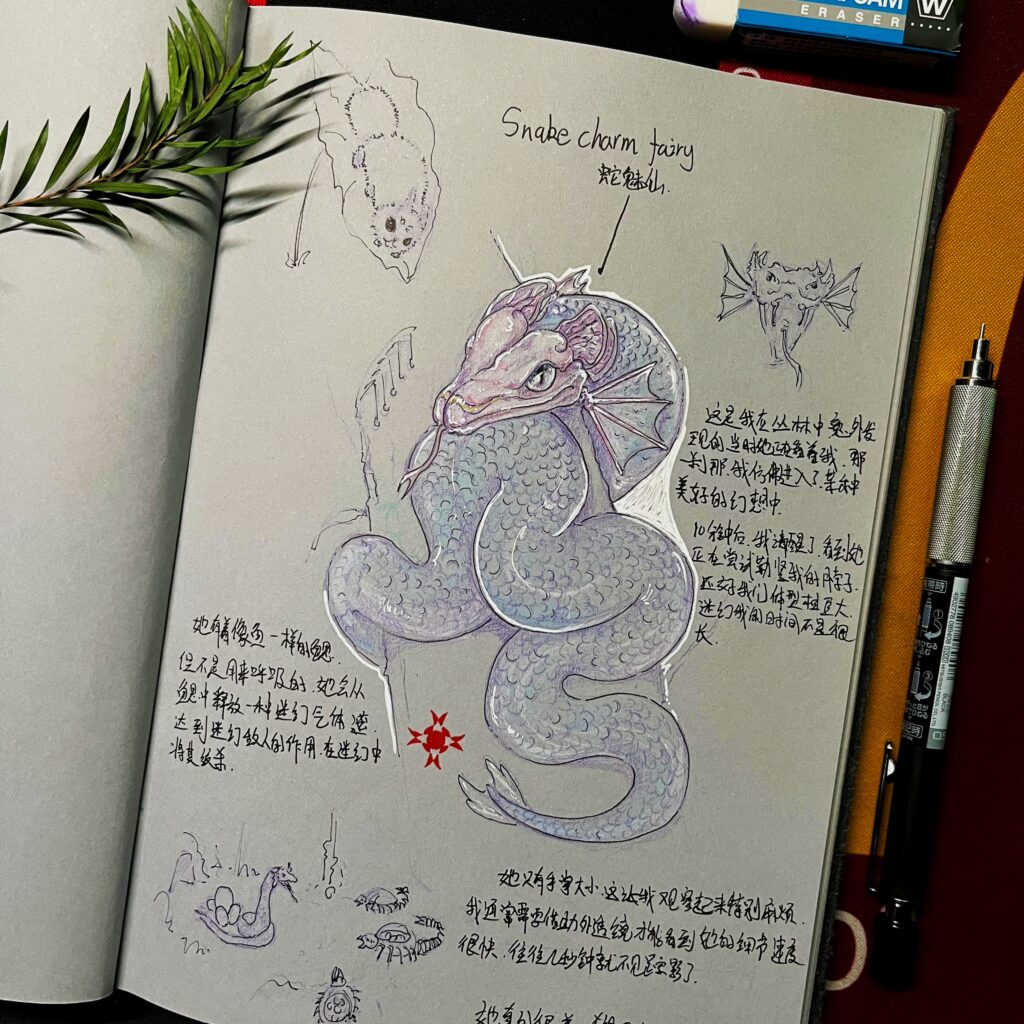 FOAM W
ERASER
Snake charm fairy
蛇魅仙.
这是我在丛林中意外发
现的当时她正看着我.那
刹那.我仿佛进入了某种
美好的幻想中.
10分钟后.我清醒了.看到她
正在尝试勒紧我的脖子.
还好我们体型相差大.
迷幻我的时间不是很
长.
她有着像鱼一样的鳃.
但不是用来呼吸的.她会从
鳃中释放一种迷幻气体
达到迷幻敌人的作用.在迷幻中
将其绞杀.
她只有手掌大小.这让我观察起来特别麻烦.
我通常需要借助外透镜.才能看到她的细节速度
很快.往往几秒钟就不见踪影了.